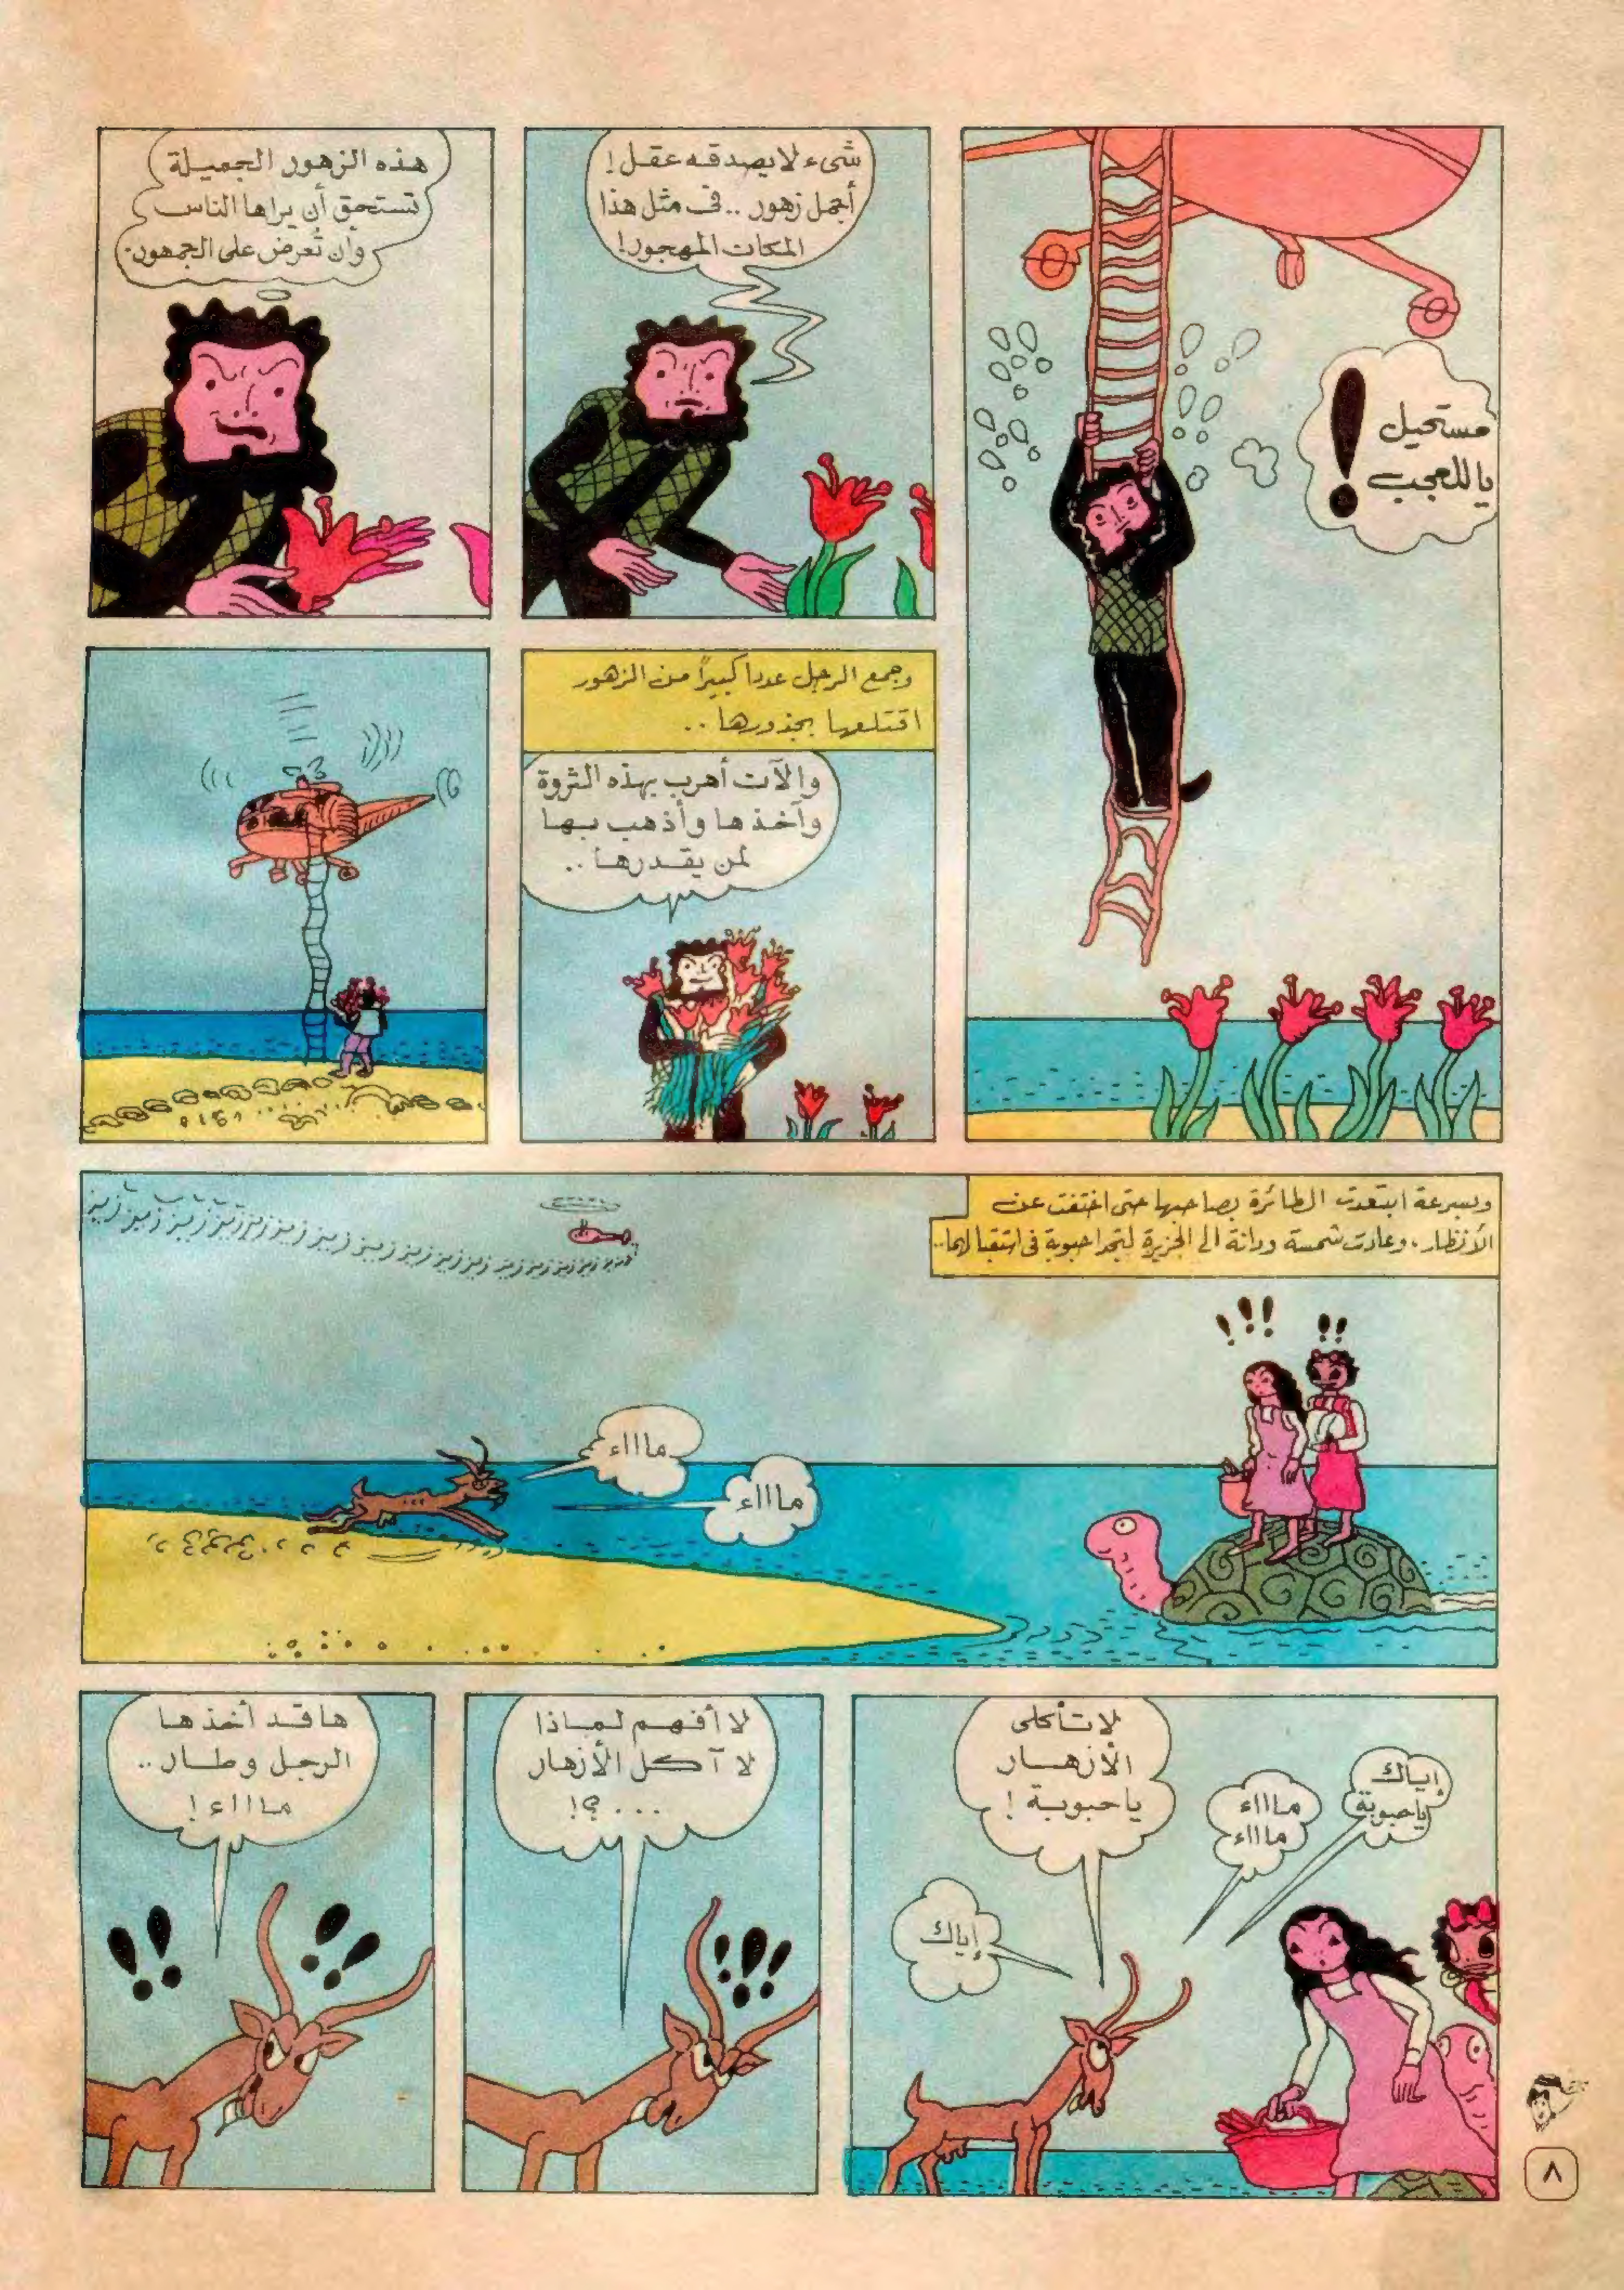 مستحيل
ياللعجب !
شىء لا يصدقه عقل !
أجمل زهور .. فى مثل هذا
المكان المهجور !
هذه الزهور الجميلة
تستحق أن يراها الناس
وأن تُعرض على الجمهور .
وجمع الرجل عددا كبيرًا من الزهور
اقتلعها بجذورها ..
والآن أهرب بهذه الثروة
وآخذها وأذهب بها
لمن يقدرها ..
وبسرعة ابتعدت الطائرة بصاحبها حتى اختفت عن
الأنظار . وعادت شمسة ودانة الى الجزيرة لتجدا حبوبة فى استقبالهما ..
!!! !!
مااااء
مااااء
إياك
ياحبوبة
مااااء
مااااء
لا تأكلى
الأزهــار
ياحبوبـة !
إياك
لا أفهم لمـاذا
لا آكل الأزهار
...؟!
!!!
هاقد أخذها
الرجل وطـار ..
مااااء !
!! !!
٨